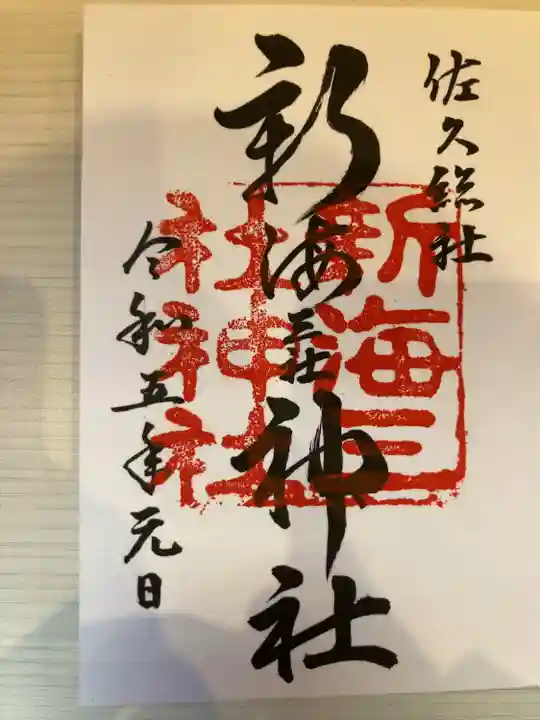 佐久総社
新海三社神社
新海三
社神社
令和五年元日